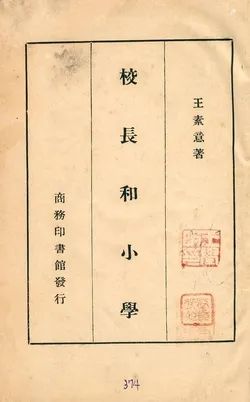 王素意著
校長和小學
商務印書館發行
374